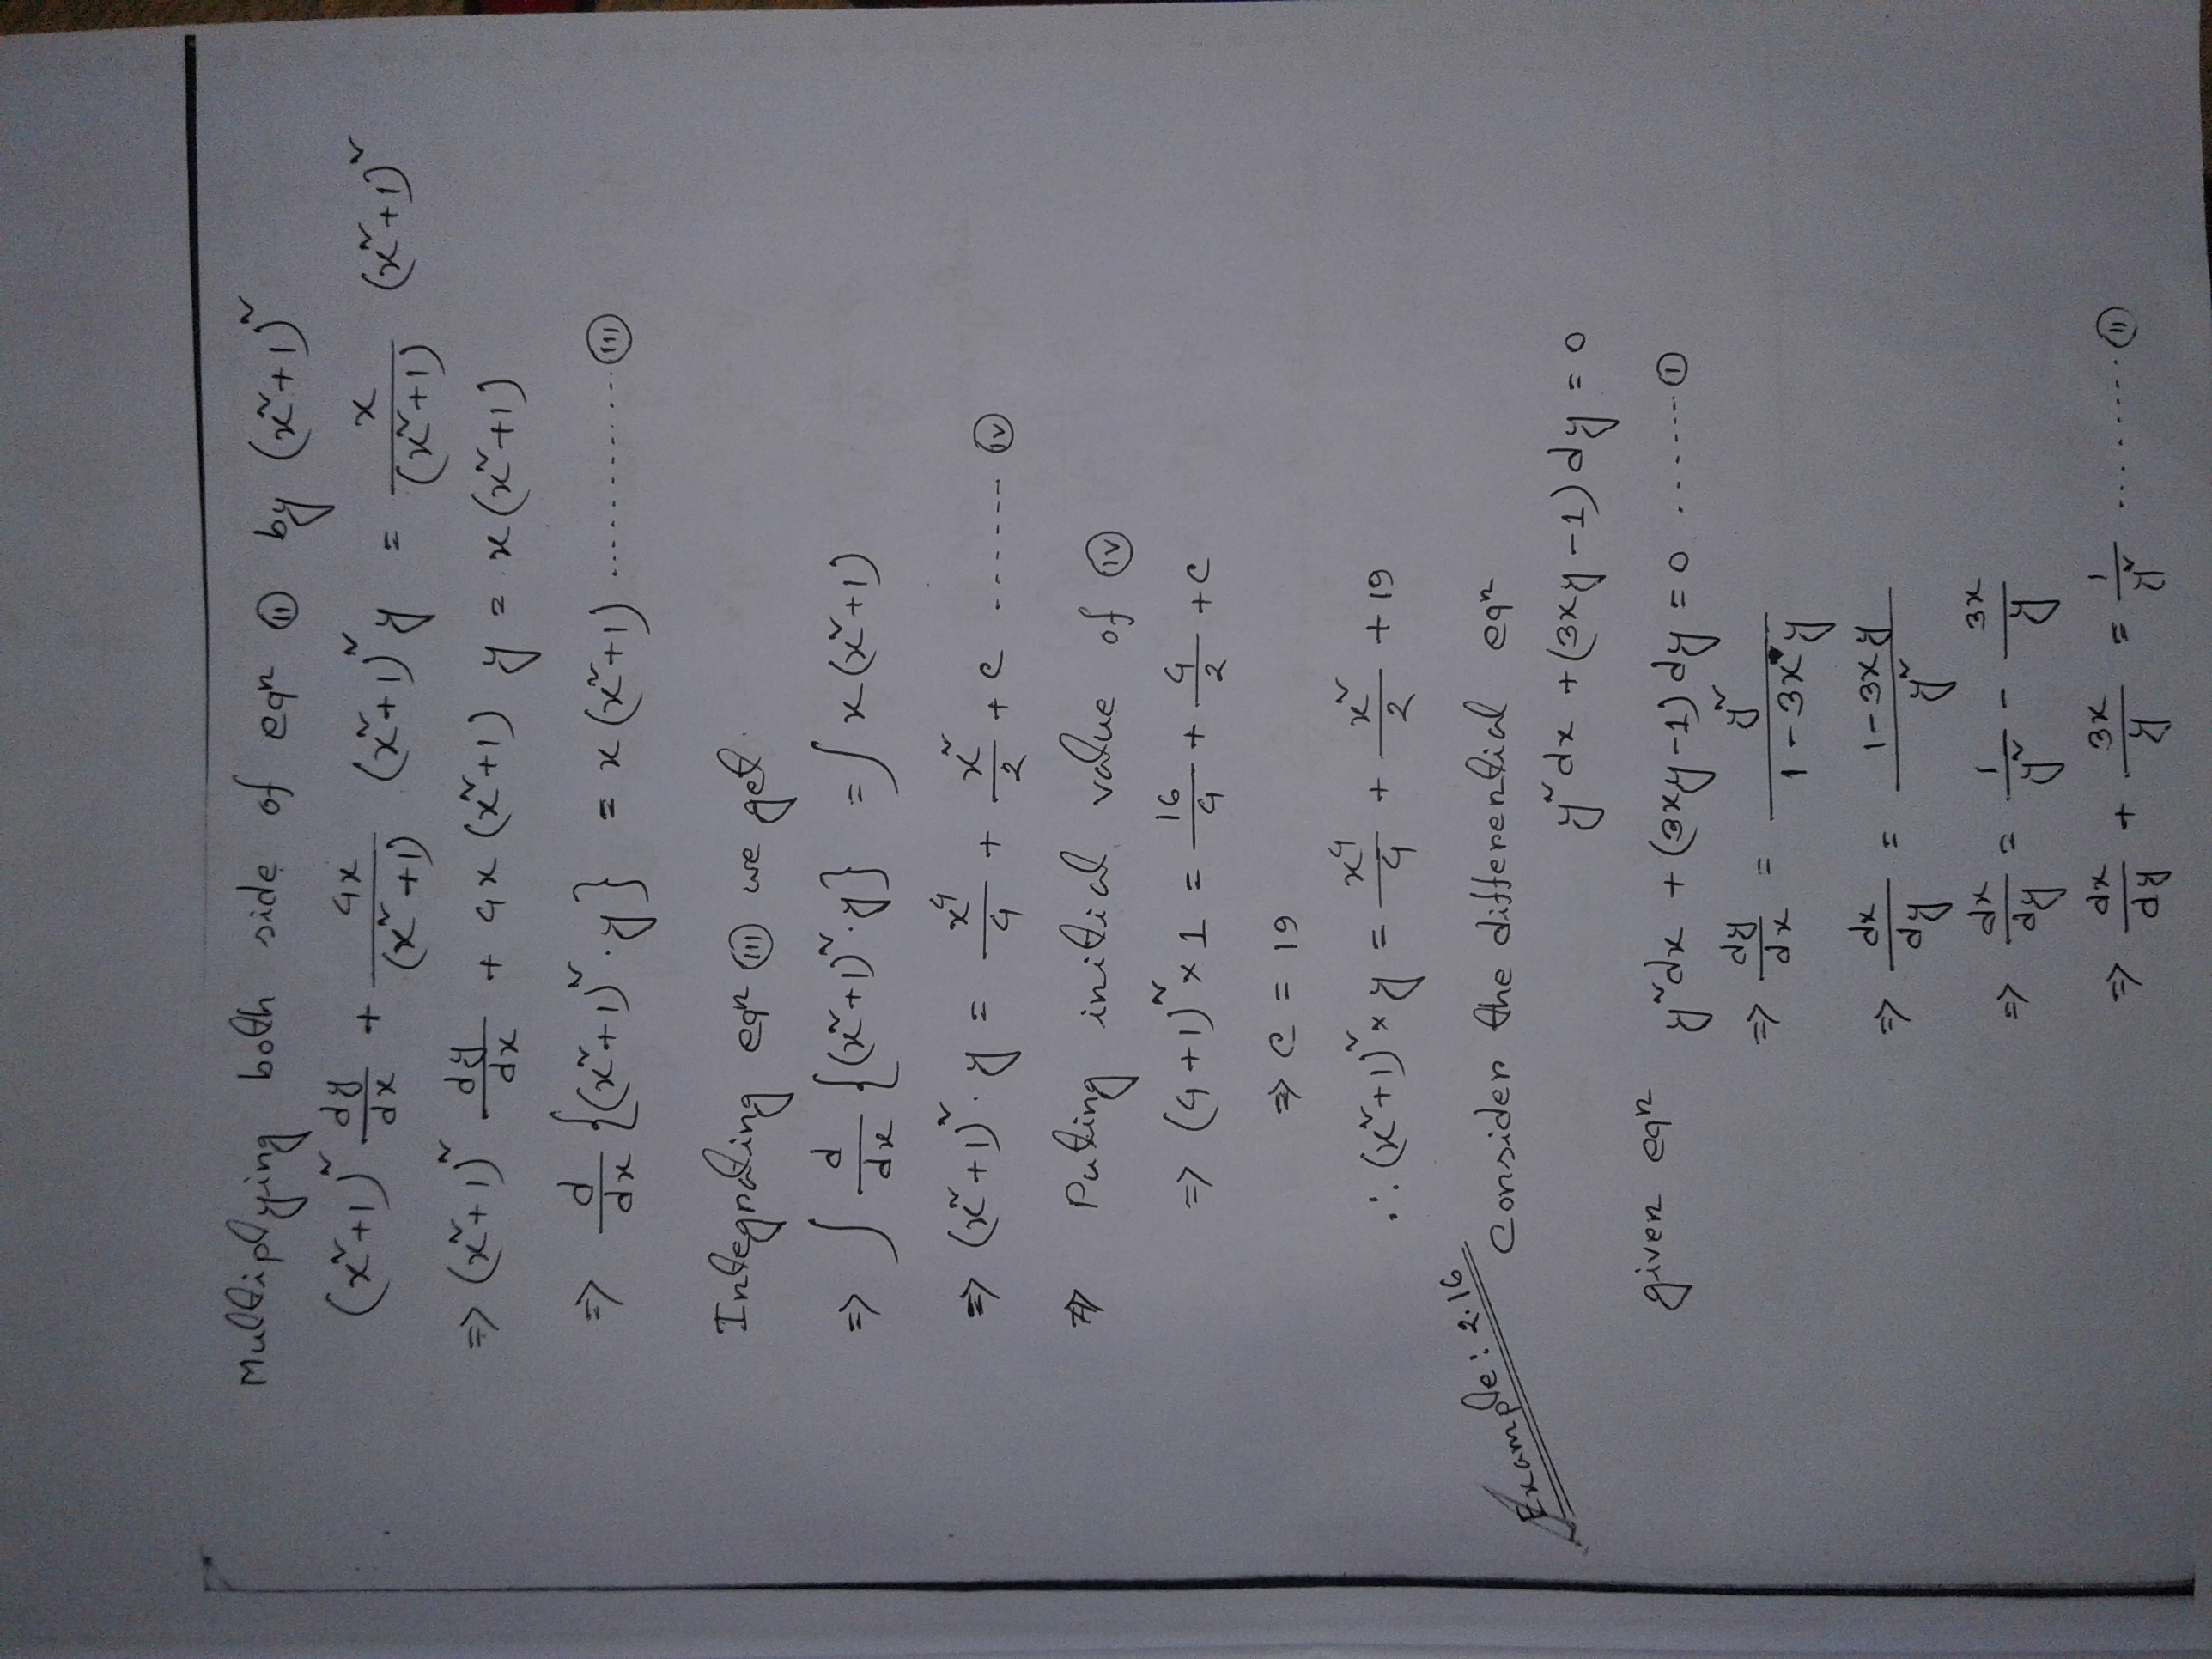 Multiplying both side of eqn (ii) by (x²+1)²
(x²+1)² dy/dx + 4x/(x²+1) (x²+1)² y = x/(x²+1) (x²+1)²
⇒ (x²+1)² dy/dx + 4x(x²+1) y = x(x²+1)
⇒ d/dx {(x²+1)² · y} = x(x²+1) ............ (iii)
Integrating eqn (iii) we get.
⇒ ∫ d/dx {(x²+1)² · y} = ∫ x(x²+1)
⇒ (x²+1)² · y = x⁴/4 + x²/2 + c ....... (iv)
⇒ Puting initial value of (iv)
⇒ (4+1)² × 1 = 16/4 + 4/2 + c
⇒ c = 19
∴ (x²+1)² × y = x⁴/4 + x²/2 + 19
Example: 2.16 Consider the differential eqn
y² dx + (3xy-1) dy = 0
given eqn y² dx + (3xy-1) dy = 0 ....... (i)
⇒ dy/dx = y²/(1-3xy)
⇒ dx/dy = (1-3xy)/y²
⇒ dx/dy = 1/y² - 3x/y
⇒ dx/dy + 3x/y = 1/y² ......... (ii)